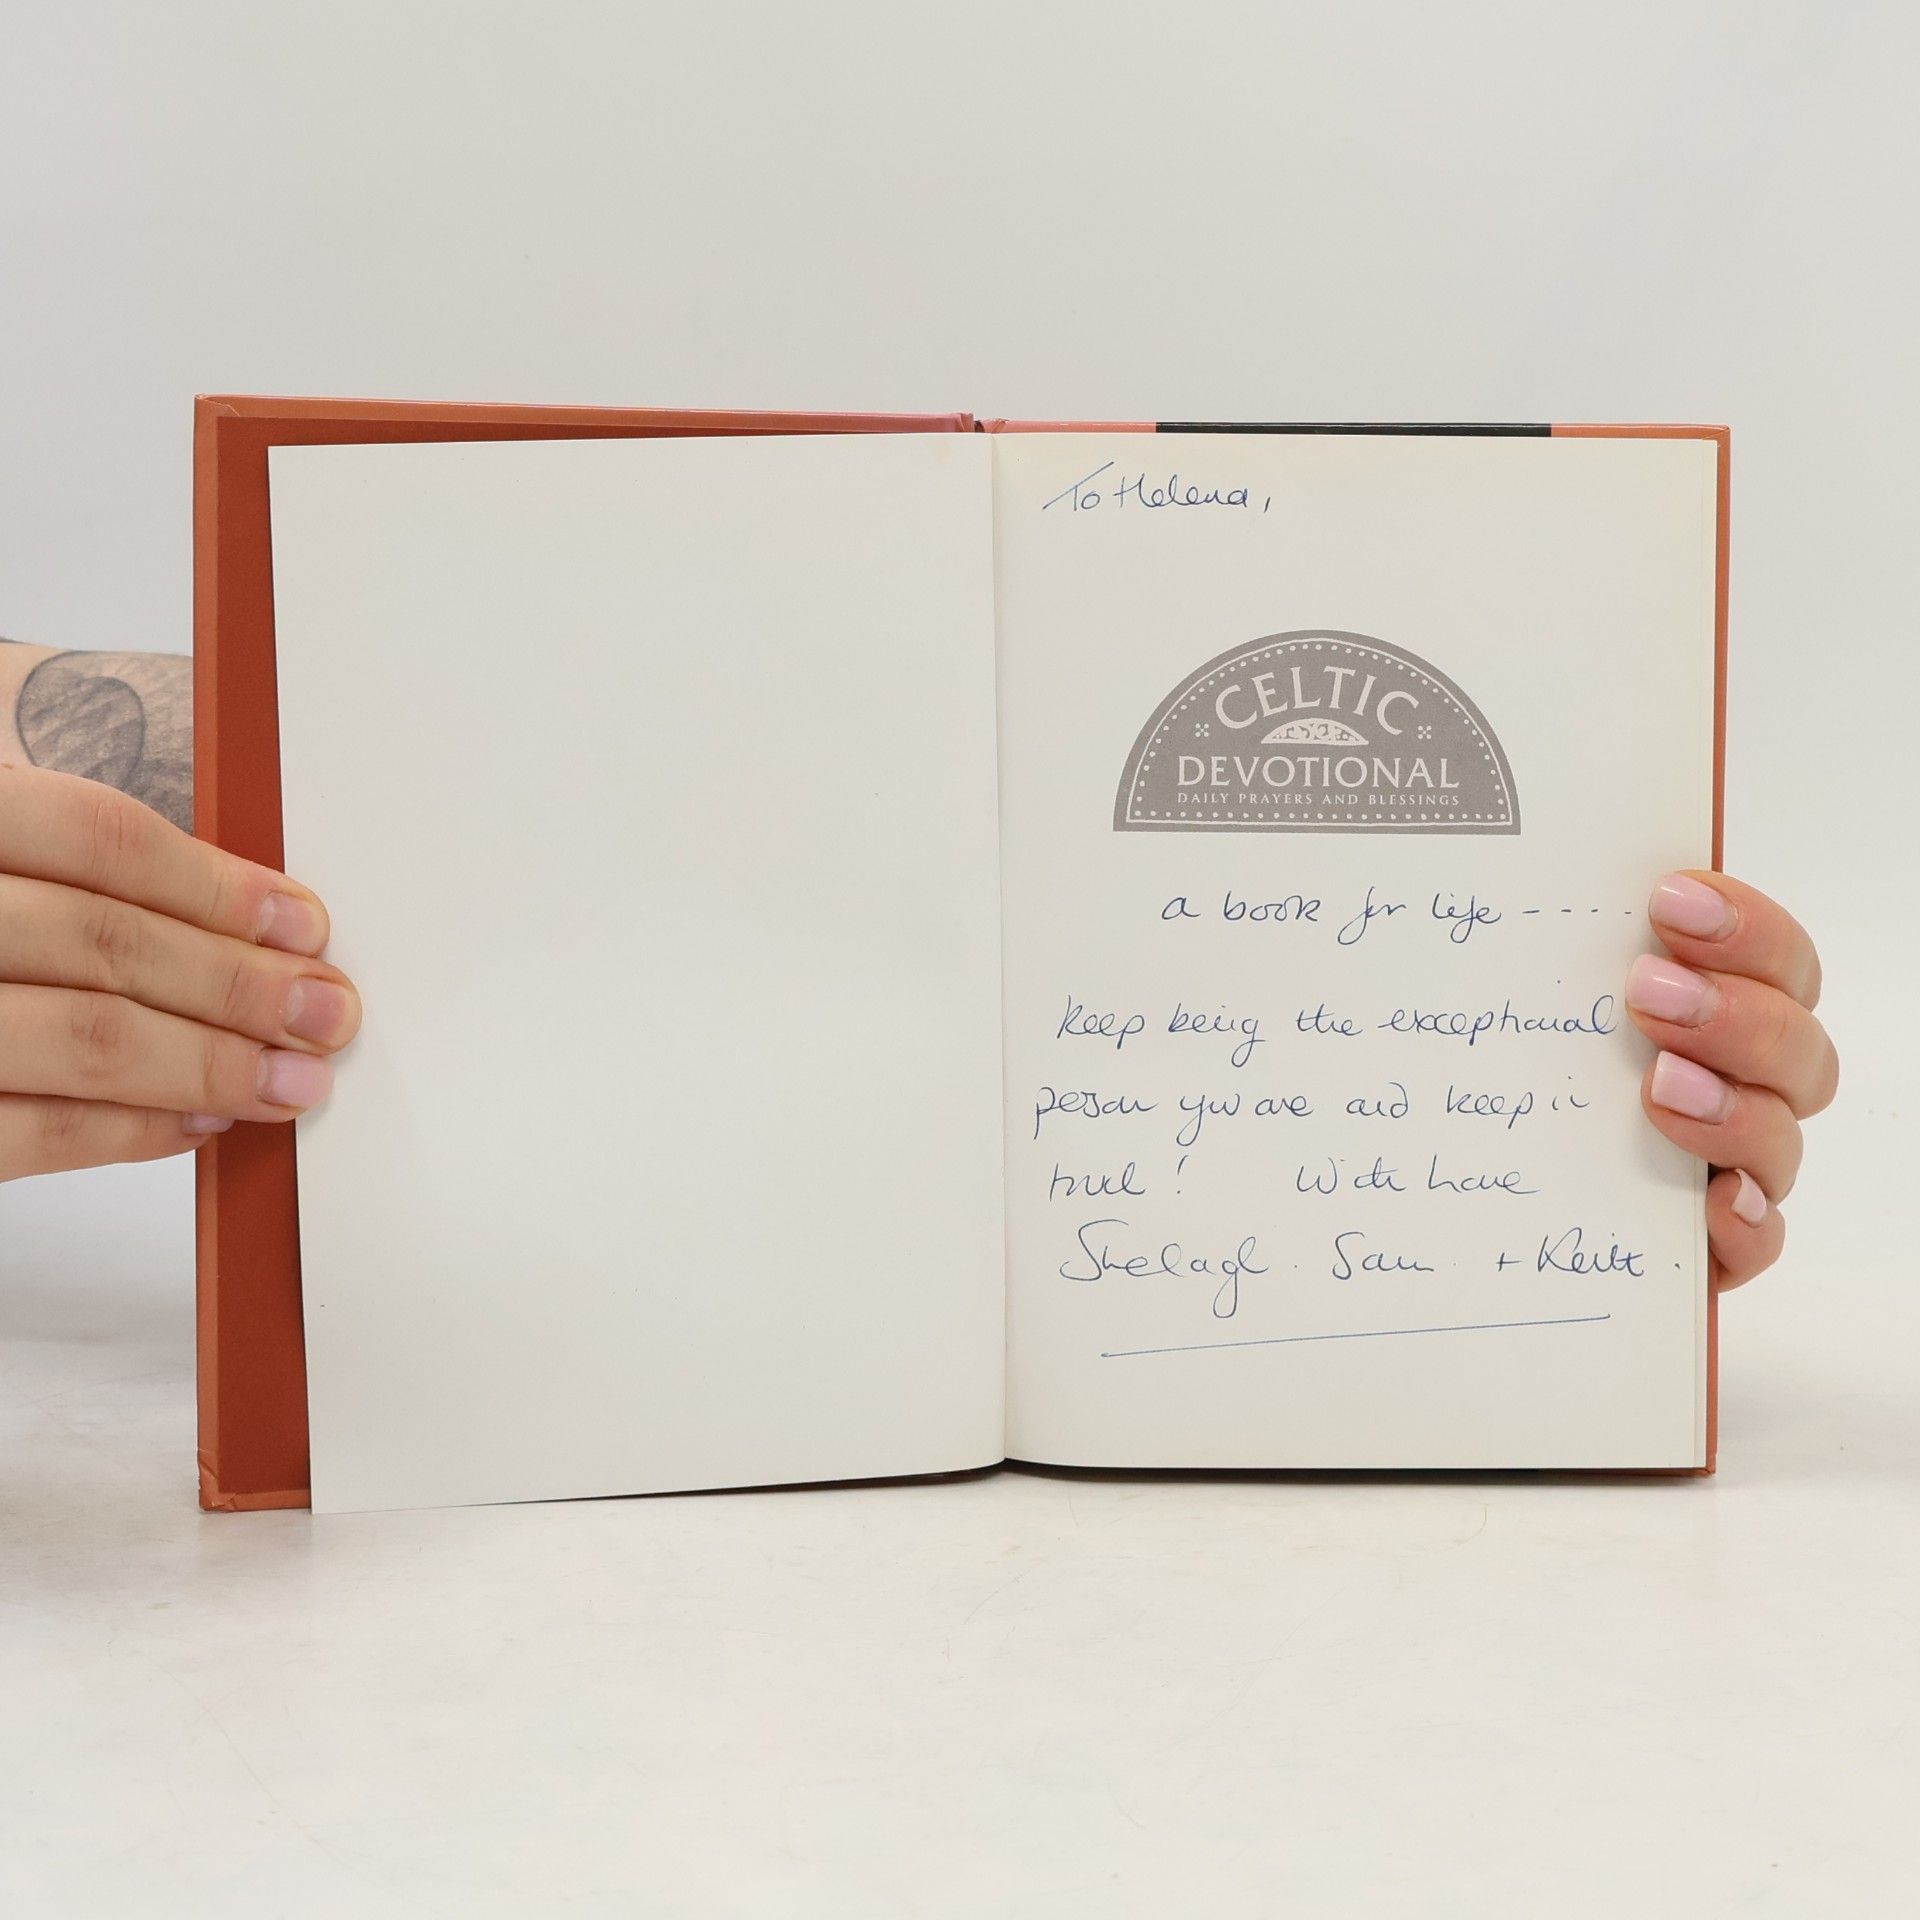 To Helena,
CELTIC
DEVOTIONAL
DAILY PRAYERS AND BLESSINGS
a book for life ----
keep being the exceptional
person you are and keep in
touch! With love
Shelagh. Sam. + Keith.